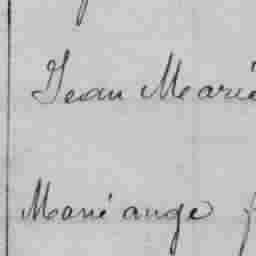 Jean Marie
Marie ange